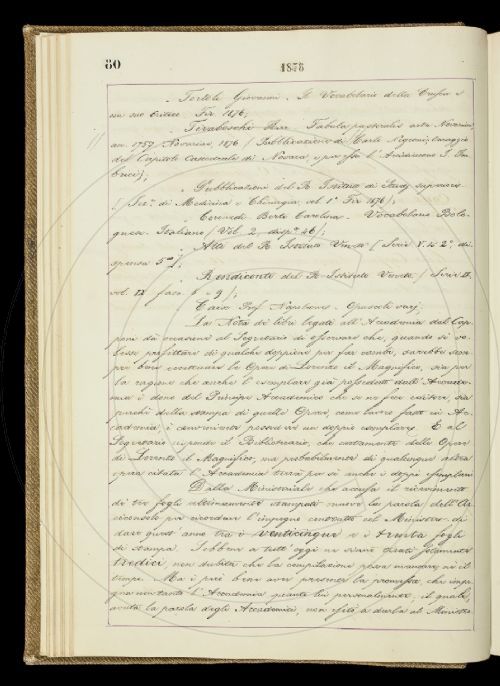 80
1876
- Tortoli Giovanni. Il Vocabolario della Crusca e
un suo Critico Fir. 1876;
Tiraboschi Hier. Tabula pastoralis acta Novariae
an. 1759 Novariae, 1876 / Pubblicazione di Carlo Negroni, omaggio
del Capitolo Cattedrale di Novara
. Pubblicazioni del R. Istituto di Studj superiori
/ Sez. di Medicina e Chirurgia, vol. 1° Fir 1876/;
. Coronedi Berti Carolina. Vocabolario Bolo-
gnese Italiano / Vol. 2. disp.e 46/;
. Atti del R. Istituto Veneto / Serie V. to 2°, di-
spensa 5.a /;
. Rendiconti del R. Istituto Lombardo / Serie II.
vol. IX fasc. /;
. Caix Prof. Napoleone. Opuscoli varj,
La Nota di libri legati all'Accademia dal Cap-
poni dà occasione al Segretario di osservare che, quando si vo-
lesse profittare di qualche doppione per far cambi, sarebbe sem-
pre bene eccettuare le Opere di Lorenzo il Magnifico, sia per
la ragione che anche l'esemplare già posseduto dall'Accade-
mia è dono del Principe Accademico che se ne fece editore, sia
perchè della stampa di quelle Opere, come lavoro fatto in Ac-
cademia, è conveniente possedere un doppio esemplare. E al
Segretario risponde il Bibliotecario, che certamente delle Opere
di Lorenzo il Magnifico, ma probabilmente di qualunque altra
opera citata l'Accademia terrà per sè anche i doppi esemplari
Dalla Ministeriale che accusa il ricevimento
di tre fogli ultimamente stampati muove la parola dell'Ar-
ciconsolo per ricordare l'impegno contratto col Ministro di
dare quest'anno tra i venticinque e i trenta fogli
di stampa. Sebbene a tutt'oggi ne siano tirati solamente
tredici, non dubita che la compilazione possa mandare ad il
tempo. Ma è pur bene aver presente la promessa, che impe-
gna non tanto l'Accademia quanto lui personalmente, il quale,
avuta la parola degli Accademici, non esitò a darla al Ministro